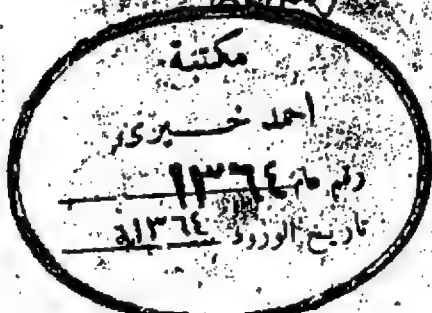 مكتبة
أحمد خيرى
رقم عام
تاريخ الورود ١٣٦٤